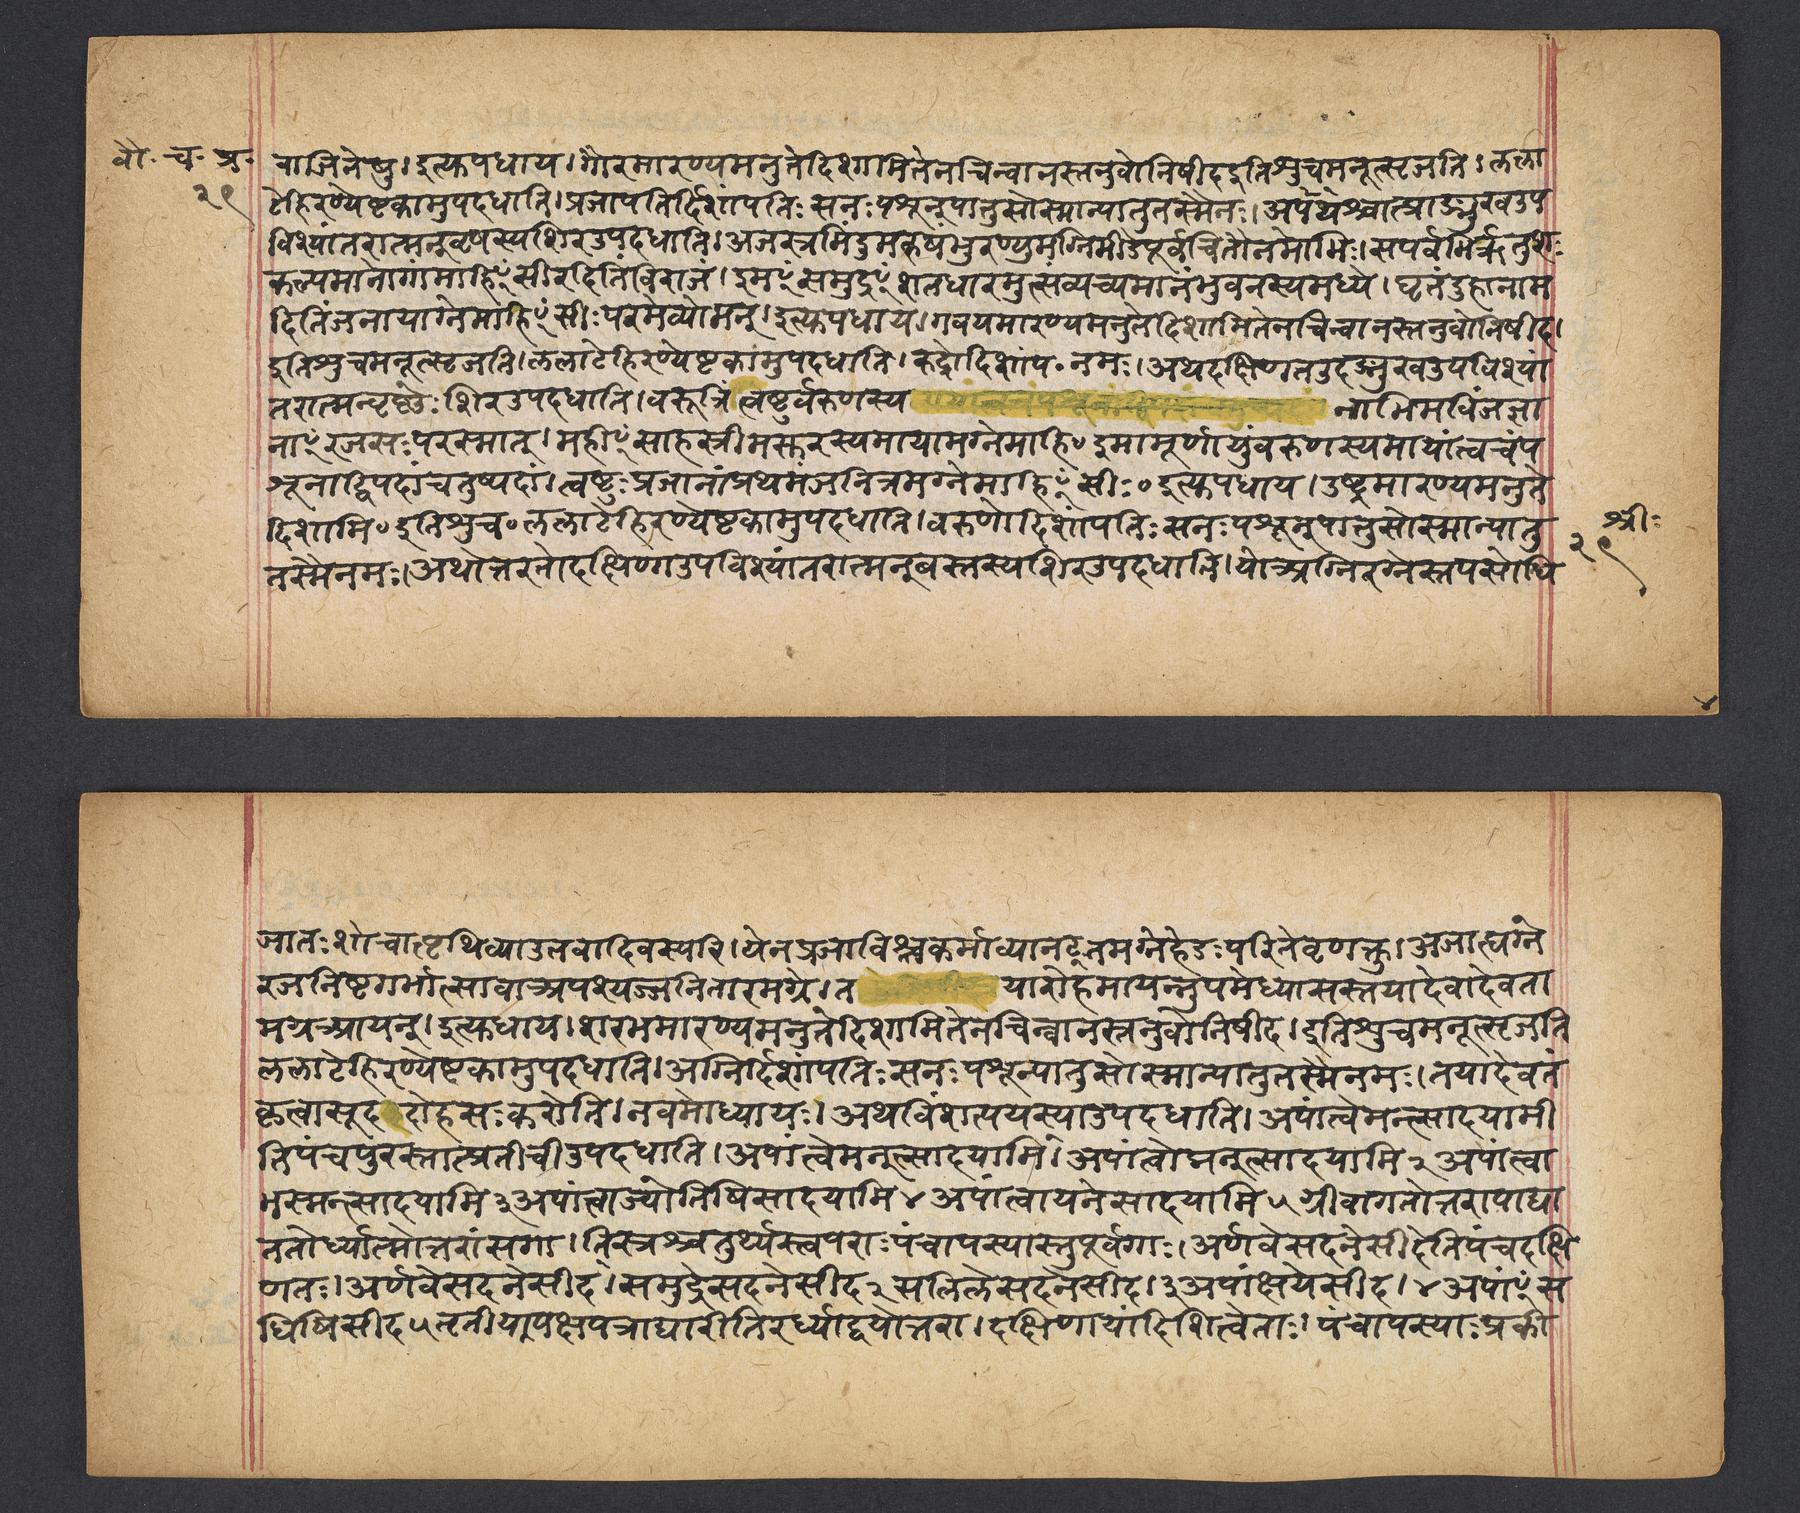 बौ॰ च॰ प्र॰
२९
वाजिनेषु। इत्युपधाय। गौरमारण्यमनुतेदिशामितेनचिन्वानस्तनुवोनिषीदइतिशुचमनूत्सृजति। लला
टेहिरण्येष्टकामुपदधाति। प्रजापतिर्दिशांपतिः सनः पशून्पातुसोस्मान्पातुतस्मैनः। अथपश्चात्प्राङ्मुखउप
विश्यांतरात्मन्वृषस्यशिरउपदधाति। अजस्रमिंदुमरुषंभुरण्युमग्निमीडेपूर्वचितौनमोभिः। सपर्वभिर्ऋतुशः
कल्पमानोगांमाहिꣳसीरदितिंविराजं। इमꣳसमुद्रꣳशतधारमुत्संव्यच्यमानंभुवनस्यमध्ये। घृतंदुहानाम
दितिंजनायाग्नेमाहिꣳसीः परमेव्योमन्। इत्युपधाय। गवयमारण्यमनुतेदिशामितेनचिन्वानस्तनुवोनिषीद।
इतिशुचमनूत्सृजति। ललाटेहिरण्येष्टकामुपदधाति। रुद्रोदिशांप॰ नमः। अथदक्षिणतउदङ्मुखउपविश्यां
तरात्मन्वृष्णेः शिरउपदधाति। वरूत्रिं त्वष्टुर्वरुणस्य नाभिमविंजज्ञा
नाꣳरजसः परस्मात्। महीꣳसाहस्रीमसुरस्यमायामग्नेमाहि॰ इमामूर्णायुंवरुणस्यमायांत्वचंप
शूनाद्विपदांचतुष्पदां। त्वष्टुः प्रजानांप्रथमंजनित्रमग्नेमाहिꣳसीः॰ इत्युपधाय। उष्ट्रमारण्यमनुते
दिशामि॰ इतिशुच॰ ललाटेहिरण्येष्टकामुपदधाति। वरुणोदिशांपतिः सनः पशून्पातुसोस्मान्पातु
तस्मैनमः। अथोत्तरतोदक्षिणाउपविश्यांतरात्मन्बस्तस्यशिरउपदधाति। योअग्निरग्नेस्तपसोधि
श्रीः
२९
जातः शोचात्पृथिव्याउतवादिवस्परि। येनप्रजाविश्वकर्माव्यानट्तमग्नेहेडः परितेवृणक्तु। अजाह्यग्ने
रजनिष्टगर्भात्सावाअपश्यज्जनितारमग्रे। त यारोहमायन्नुपमेध्यासस्तयादेवादेवता
मग्रआयन्। इत्युपधाय। शरभमारण्यमनुतेदिशामितेनचिन्वानस्तनुवोनिषीद। इतिशुचमनूत्सृजति
ललाटेहिरण्येष्टकामुपदधाति। अग्निर्दिशांपतिः सनः पशून्पातुसोस्मान्पातुतस्मैनमः। तयादेवतं
कृत्वासूद दोहसः करोति। नवमोध्यायः। अथविंशत्यपस्याउपदधाति। अपांत्वेमन्त्सादयामी
तिपंचपुरस्तात्प्रतीचीउपदधाति। अपांत्वेमन्त्सादयामि। अपांत्वोद्मन्त्सादयामि २ अपांत्वा
भस्मन्त्सादयामि ३ अपांत्वाज्योतिषिसादयामि ४ अपांत्वायनेसादयामि ५ ग्रीवागतोत्तरापाद्या
ततोर्ध्यात्मोत्तरांसगा। तिस्रश्चतुर्थ्यस्त्वपराः पंचापस्यास्तुपूर्वगाः। अर्णवेसदनेसीदेतिपंचदक्षि
णतः। अर्णवेसदनेसीद। समुद्रेसदनेसीद २ सलिलेसदनेसीद। ३ अपांक्षयेसीद। ४ अपांꣳस
धिषिसीद ५ तृतीयापक्षपत्राद्यारीतिरर्ध्याद्वयोत्तरा। दक्षिणायांदिशित्वेताः। पंचापस्याः प्रकी